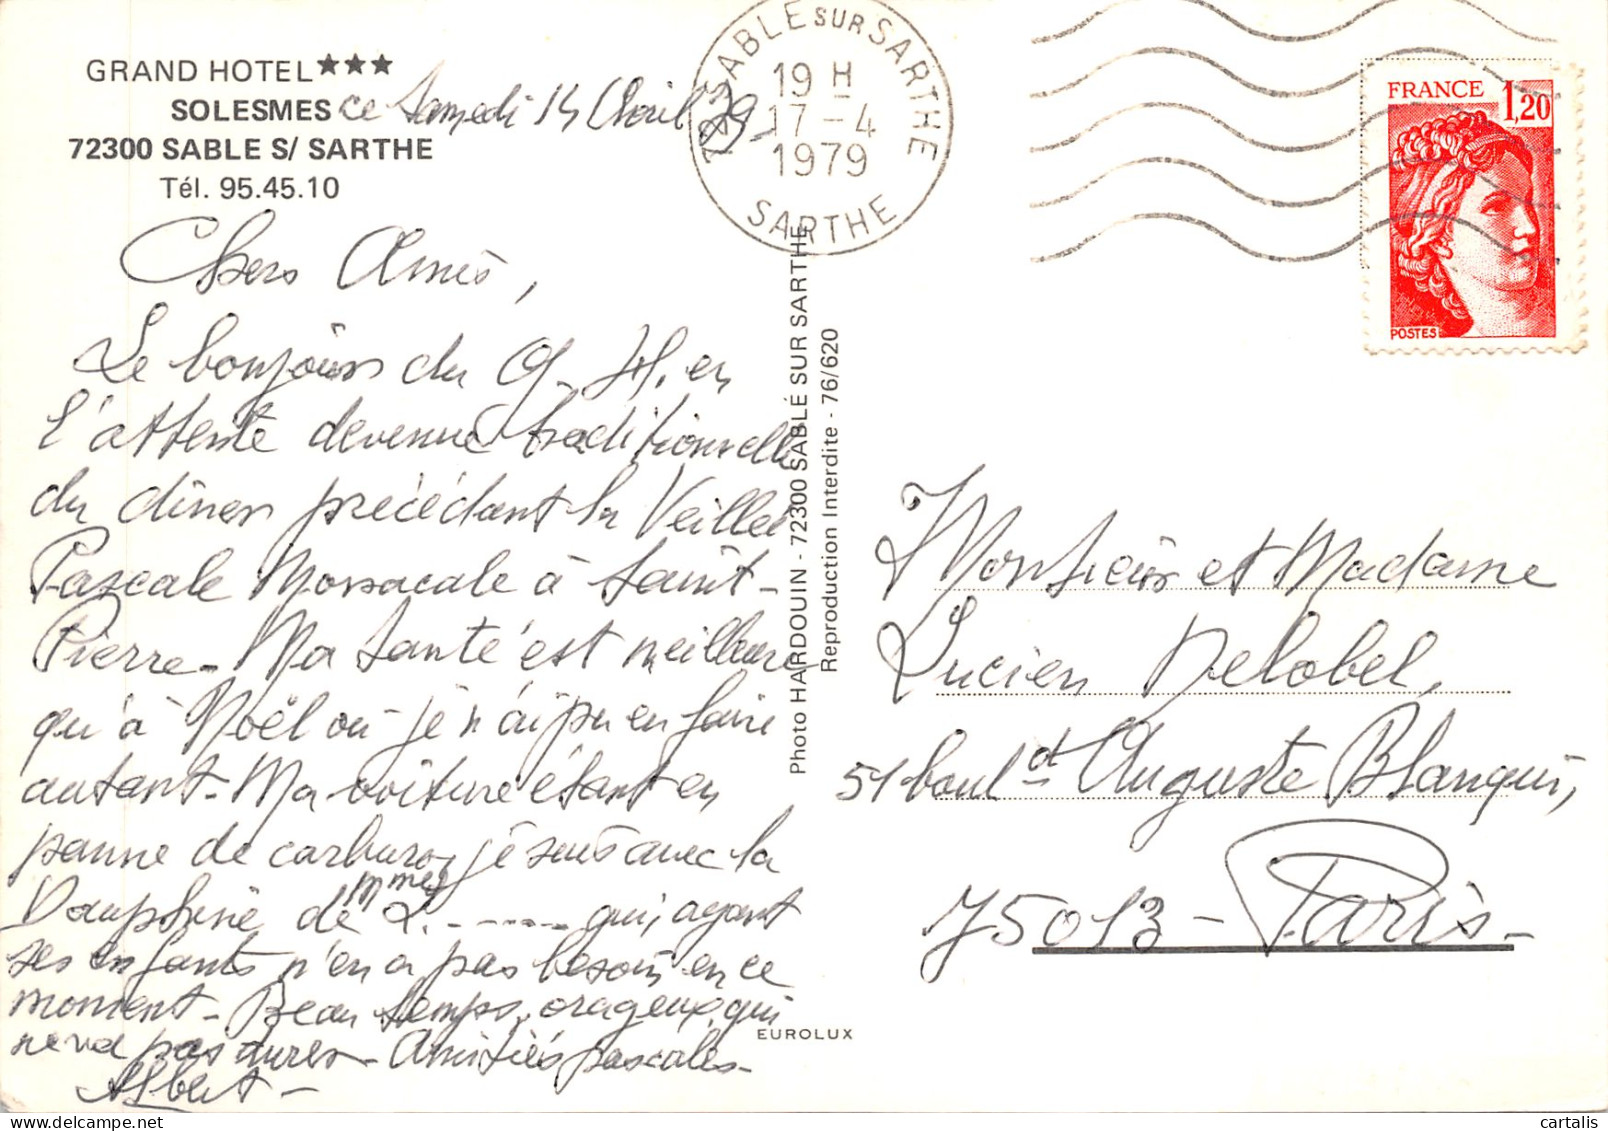 GRAND HOTEL★★★
SOLESMES
72300 SABLE S/ SARTHE
Tél. 95.45.10
ce Samedi 14 Avril 79-
72 SABLE SUR SARTHE
19 H
17-4
1979
SARTHE
FRANCE 1,20
POSTES
Chers Amis,
Le bonjour du G.H. en
l'attente devenue traditionnelle
du dîner précédant la Veillée
Pascale Monacale à Saint-
Pierre- Ma santé est meilleure
qu'à Noël où je n'ai pu en faire
autant- Ma voiture étant en
panne de je suis avec la
Dauphine de Mme L.------- qui, ayant
ses enfants n'en a pas besoin en ce
moment- Beau temps, orageux, qui
ne va pas durer- Amitiés pascales-
Albert-
Photo HARDOUIN - 72300 SABLÉ SUR SARTHE
Reproduction Interdite - 76/620
EUROLUX
Monsieur et Madame
Lucien Delobel,
51 boul^d Auguste Blanqui,
75013- Paris-
cartalis
www.delcampe.net